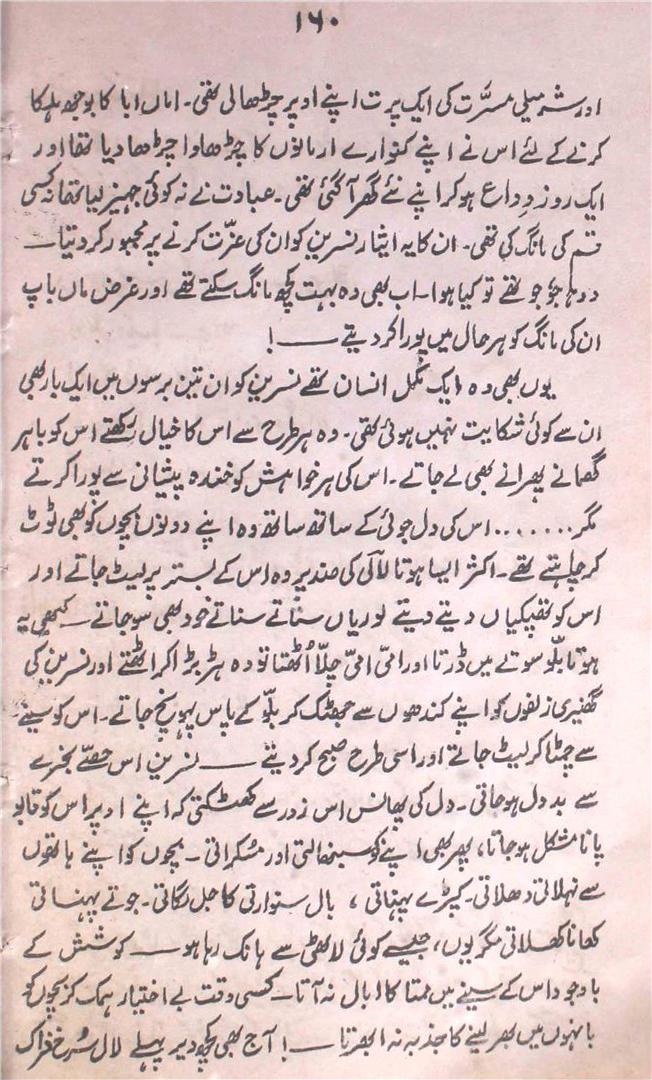 ۱۶۰
اور شرمیلی مسرّت کی ایک پرت اپنے اوپر چڑھالی تھی۔ اماں ابا کا بوجھ ہلکا
کرنے کے لئے اس نے اپنے کنوارے ارمانوں کا چڑھاوا چڑھا دیا تھا اور
ایک روز وداع ہوکر اپنے نئے گھر آگئی تھی۔ عبادت نے نہ کوئی جہیز لیا تھا نہ کسی
قسم کی مانگ کی تھی۔ ان کا یہ ایثار نسرین کو ان کی عزّت کرنے پر مجبور کر دیتا —
دوہاجُو جو تھے تو کیا ہوا۔ اب بھی وہ بہت کچھ مانگ سکتے تھے اور غرض ماں باپ
ان کی مانگ کو ہر حال میں پورا کر دیتے — !
یوں بھی وہ ایک مکمل انسان تھے نسرین کو ان تین برسوں میں ایک بار بھی
ان سے کوئی شکایت نہیں ہوئی تھی۔ وہ ہر طرح سے اس کا خیال رکھتے اس کو باہر
گھمانے پھرانے بھی لے جاتے۔ اس کی ہر خواہش کو خندہ پیشانی سے پورا کرتے
مگر....... اس کی دل جوئی کے ساتھ ساتھ وہ اپنے دونوں بچوں کو بھی ٹوٹ
کر چاہتے تھے۔ اکثر ایسا ہوتا لاکی کی ضد پر وہ اس کے بستر پر لیٹ جاتے اور
اس کو تھپکیاں دیتے دیتے لوریاں سناتے سناتے خود بھی سوجاتے — کبھی یہ
ہوتا بلّو سوتے میں ڈرتا اور امّی امّی چلّا اُٹھتا تو وہ ہڑبڑا کر اٹھتے اور نسرین کی
گھنیری زلفوں کو اپنے کندھوں سے جھٹک کر بلّو کے پاس پہونچ جاتے۔ اس کو سینے
سے چمٹا کر لیٹ جاتے اور اسی طرح صبح کر دیتے — نسرین اس حصّے بخرے
سے بددل ہوجاتی۔ دل کی پھانس اس زور سے کھٹکتی کہ اپنے اوپر اس کو قابو
پانا مشکل ہوجاتا، پھر بھی اپنے کو سنبھالتی اور مسکراتی۔ بچوں کو اپنے ہاتھوں
سے نہلاتی دھلاتی۔ کپڑے پہناتی، بال سنوارتی کاجل لگاتی۔ جوتے پہناتی
کھانا کھلاتی مگر یوں، جیسے کوئی لاٹھی سے ہانک رہا ہو — کوشش کے
باوجود اس کے سینے میں ممتا کا ابال نہ آتا — کسی وقت بے اختیار ہمک کر بچوں کو
بانہوں میں بھر لینے کا جذبہ نہ ابھرتا — ! آج بھی کچھ دیر پہلے لال سُرخ فراک